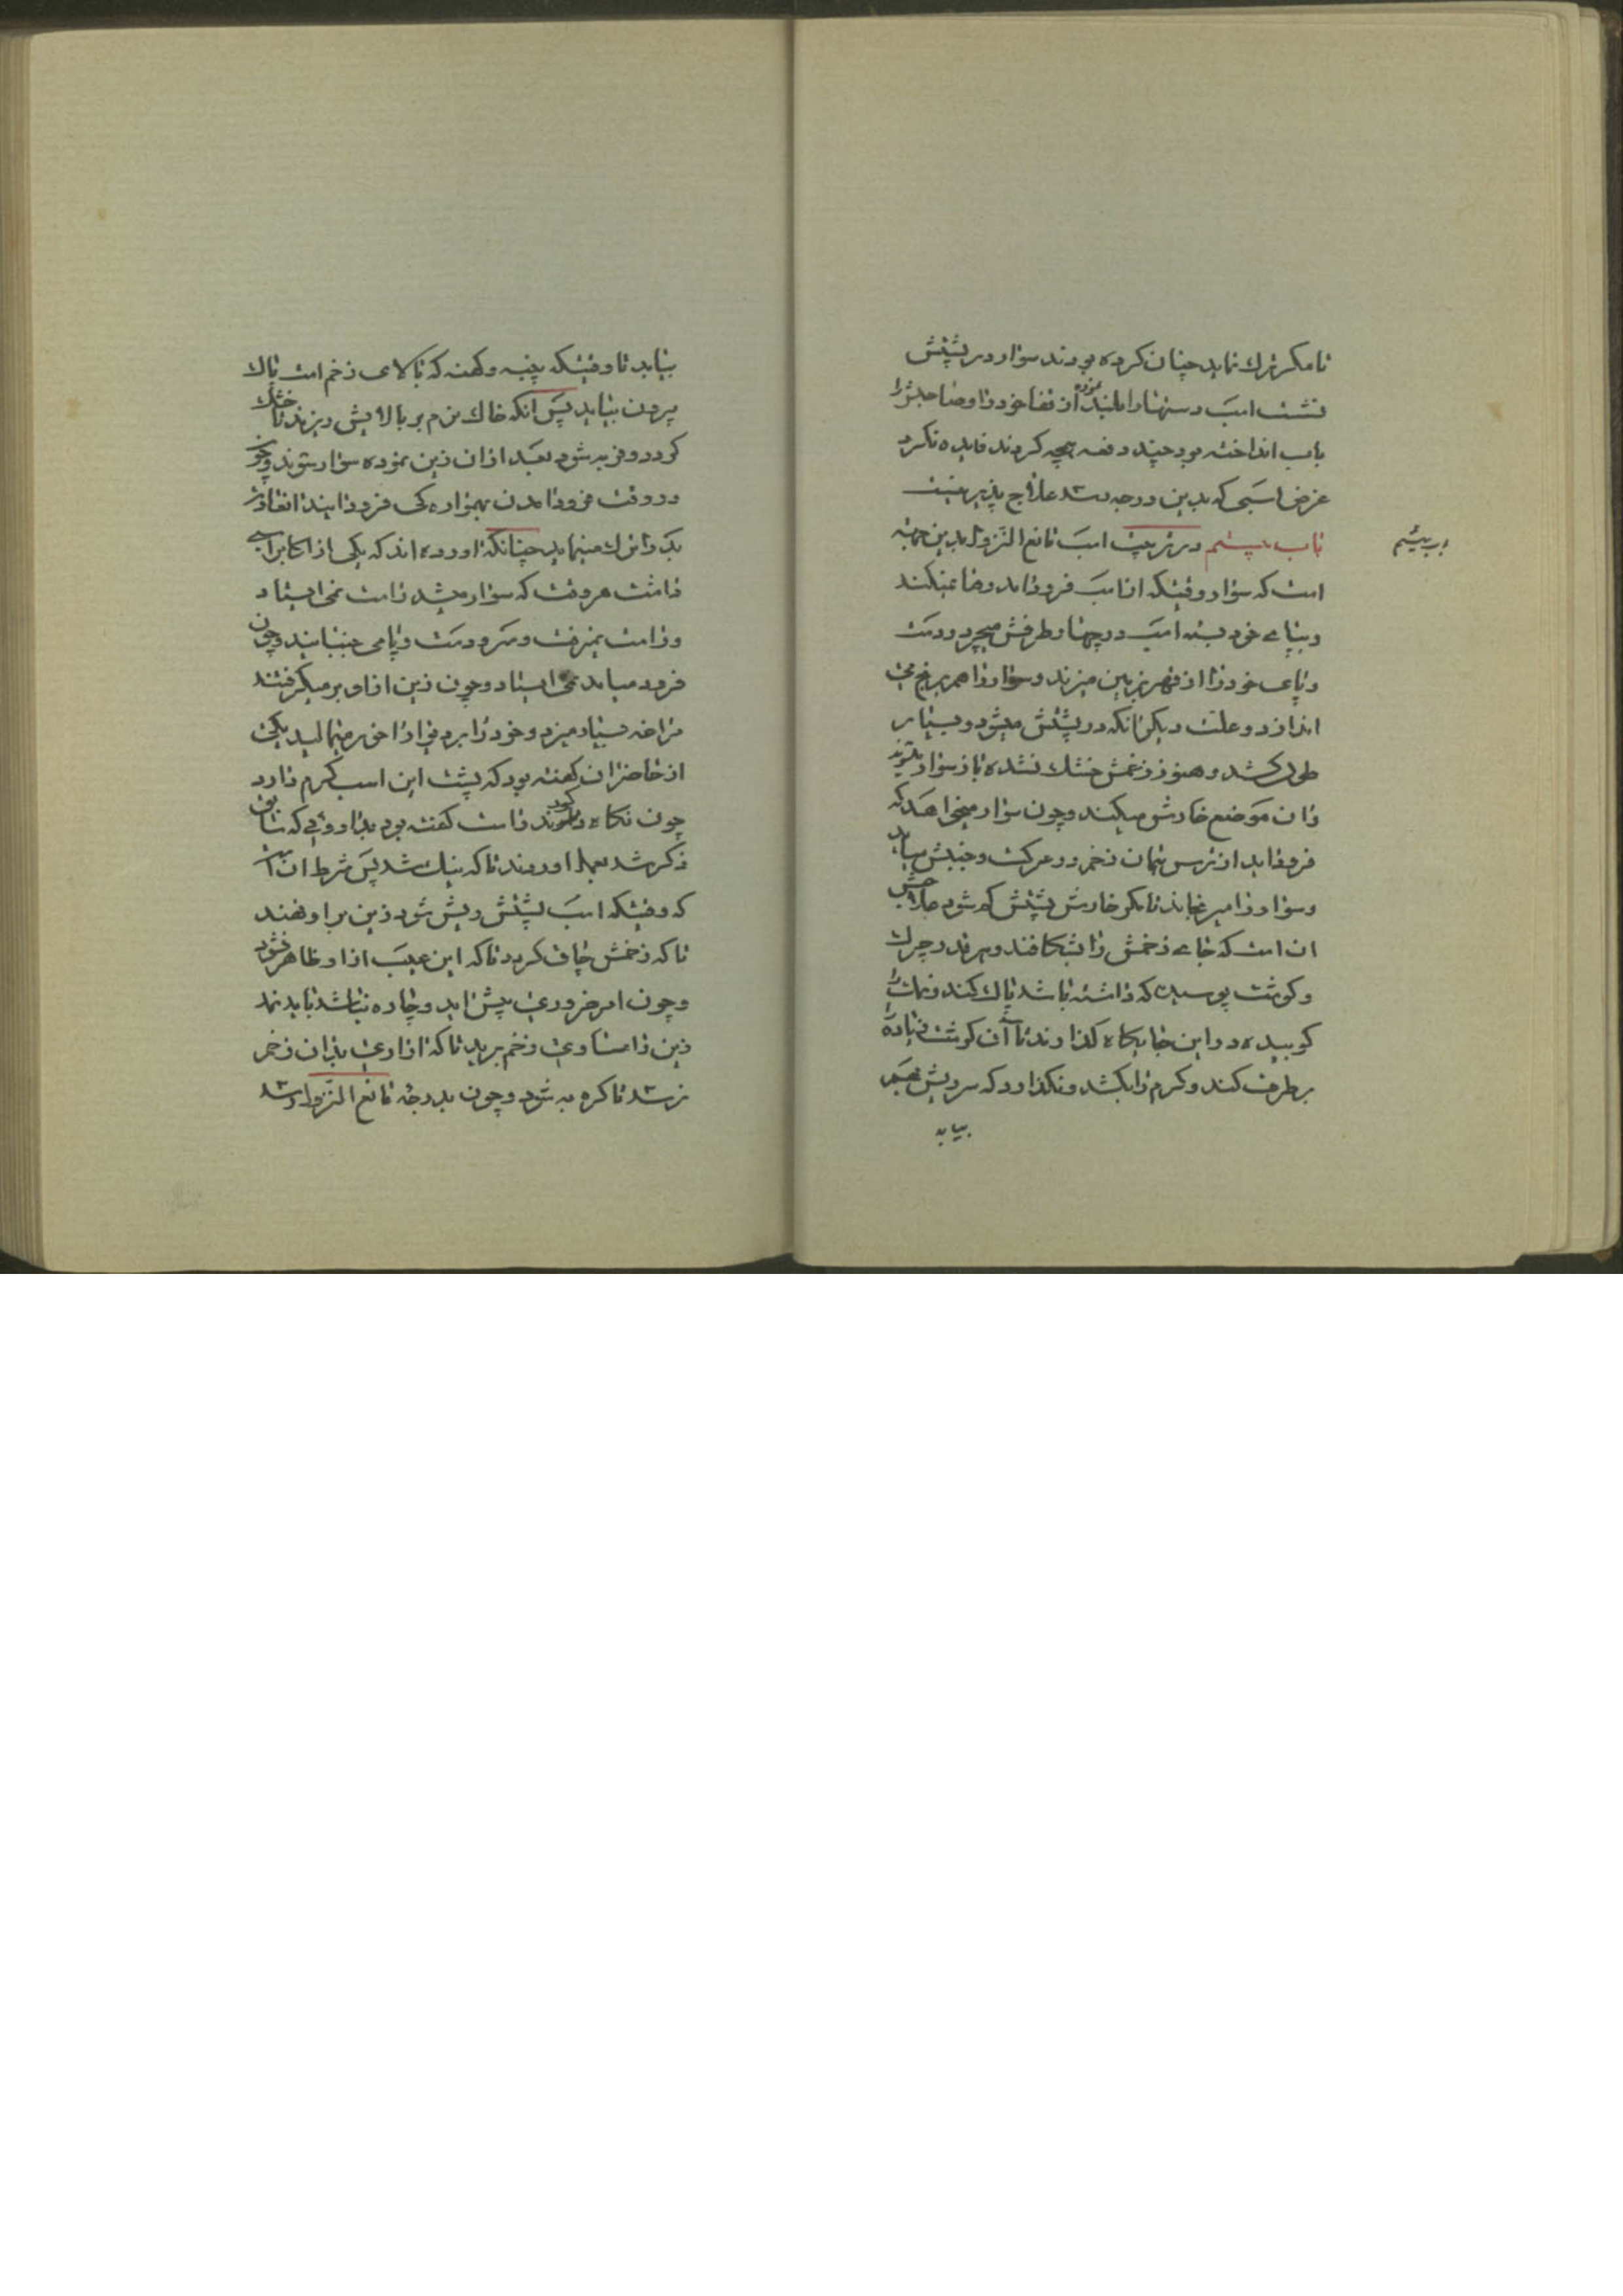 تا مکر ترك نماید چنان کرده بودند سوار در پشتش
نشست اسب دستها را بلند نموده از قفا خود را و صاحبش را
باب انداخته بود چند دفعه همچه کردند فایده نکرد
غرض اسبی که بدین درجه رسد علاج پذیر نیست
باب بیستم در تربیت اسب مانع النزول بدین جهة
باب بیستم
است که سوار وقتیکه از اسب فرود اید رضا نمیکند
و بپای خود بسته اسب در چهار طرفش میچرد و دست
و پای خود را از قهر بزمین میزند و سوار را هم برنج می
اندازد و علت دیکر انکه در پشتش میشود و بسیار
طول کشد و هنوز زخمش خشك نشده باز سوار بشوند
و ان موضع خارش میکند و چون سوار میخواهد که
فرود اید از ترس همان زخم در حرکت و جنبش میاید
و سوار را میرنجاند تا مکر خارش پشتش کم شود علاجش
ان است که جای زخمش را بشکافند و هر قدر چرك
و کوشت پوسیده که داشته باشد پاك کنند و نمك را
کوبیده در این جایکاه کذارند تا آن کوشت زیاده
برطرف کند و کرم را بکشد و نکذارد که سر ریش بهم
بیاید
بیاید تا وقتیکه پنبه و کهنه که بالای زخم است پاك
بیرون بیاید پس انکه خاك نرم بر بالایش ریزند تا خشك
کردد و فربه شود بعد از ان زین نموده سوار شوند و چون
در وقت فرود امدن بهمواره کی فرود ایند انعادت
بد را ترك مینماید چنانکه اورده اند که یکی از اکابر اسبی
داشت هر وقت که سوار میشد راست نمی ایستاد
و راست نمیرفت و سر و دست و پا می جنبانید و چون
فرود میامد می ایستاد و چون زین از او بر میکرفتند
مراغه بسیار میزد و خود را بر دیوار اخور میمالید یکی
از حاضران کفته بود که پشت این اسب کرم دارد
چون نکاه کردند راست کفته بود بدان داروئی که سابق
ذکر شد بعمل اوردند تا که نیك شد پس شرط ان است
که وقتیکه اسب پشتش ریش شود زین بر او نهند
تا که زخمش چاق کردد تا که این عیب از او ظاهر نشود
و چون امر ضروری پیش اید و چاره نباشد باید نمد
زین را مساوی زخم برید تا که ازاری بدان زخم
نرسد تا کره به شود و چون بدرجه مانع النزول رسد